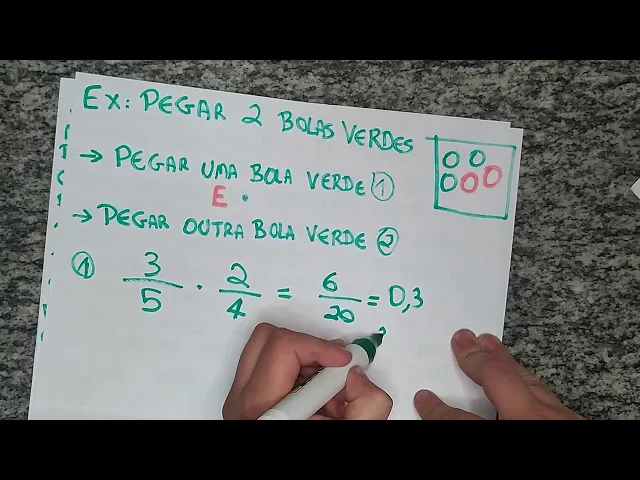 Ex: PEGAR 2 BOLAS VERDES
→ PEGAR UMA BOLA VERDE ①
E •
→ PEGAR OUTRA BOLA VERDE ②
① 3/5 · 2/4 = 6/20 = 0,3